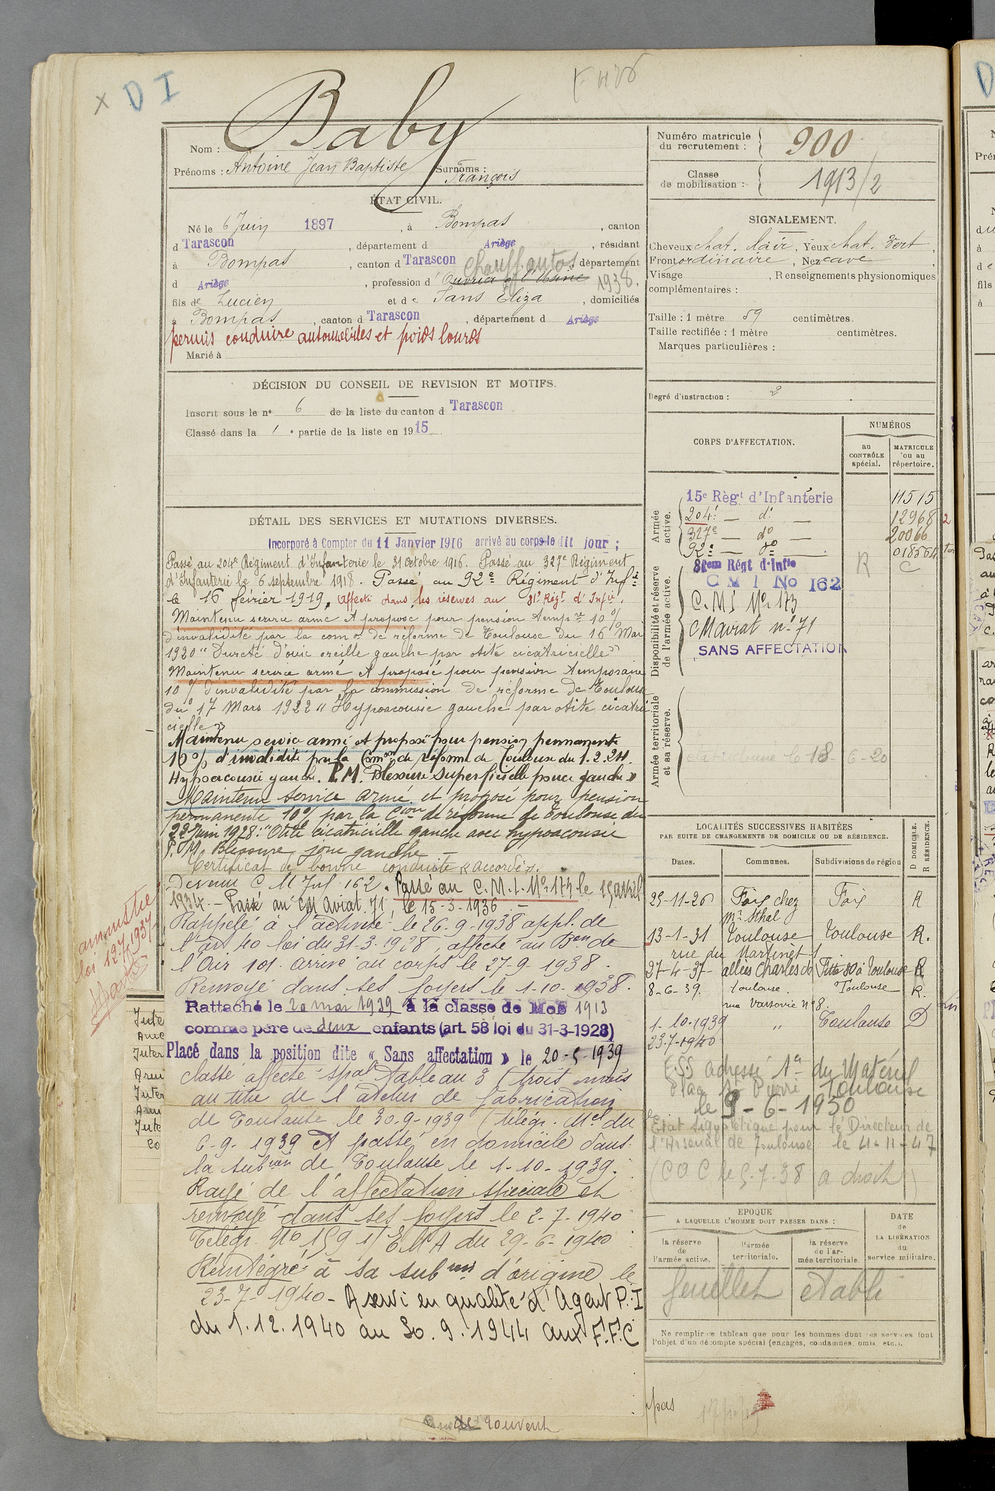 x D I
Nom : Baby
Prénoms : Antoine Jean Baptiste Surnoms : François
ÉTAT CIVIL.
Né le 6 Juin 1897, à Bompas, canton
d Tarascon, département d Ariège, résidant
à Bompas, canton d Tarascon, département
d Ariège, profession d' Ouvrier d'Usine Chauff. autos 1938.
fils de Lucien et de Sans Eliza, domiciliés
à Bompas, canton d Tarascon, département d Ariège
permis conduire automobiles et poids lourds
Marié à
DÉCISION DU CONSEIL DE REVISION ET MOTIFS.
Inscrit sous le n° 6 de la liste du canton d Tarascon
Classé dans la 1e partie de la liste en 1915
DÉTAIL DES SERVICES ET MUTATIONS DIVERSES.
Incorporé à Compter du 11 Janvier 1916 arrivé au corps le dit jour ;
Passé au 204e Régiment d'Infanterie le 31 octobre 1916. Passé au 327e Régiment
d'Infanterie le 6 septembre 1918. Passé au 92e Régiment d'Infie
le 16 février 1919. Affecté dans les réserves au 81e Régt d'Infie.
Maintenu service armé et proposé pour pension temp. 10 %
d'invalidité par la comon de réforme de Toulouse du 16 Mai
1920 "Dureté d'ouïe oreille gauche par otite cicatricielle"
Maintenu service armé et proposé pour pension temporaire
10 % d'invalidité par la commission de réforme de Toulouse
du 17 Mars 1922 "Hypoacousie gauche par otite cicatri
cielle"
Maintenu service armé et proposé pour pension permanente
10 % d'invalidité par la Comon de réforme de Toulouse du 1.2.24.
Hypoacousie gauche. P.M. Blessure superficielle pouce gauche"
Maintenu service armé et proposé pour pension
permanente 10 % par la Cion de réforme de Toulouse du
22 Juin 1928 : "Otite cicatricielle gauche avec hypoacousie
P.M. Blessure joue gauche
Certificat de bonne conduite "accordé".
Devenu C M Inf 162. Passé au C.M.I. N° 173 le 15 avril
1934. - Passé au CM Aviat. 71, le 15-3-1936 -
Rappelé à l'activité le 26-9-1938 appl. de
l'art 40 loi du 31-3-1928, affecté au Bon de
l'Air 101. arrivé au corps le 27-9-1938.
Renvoyé dans ses foyers le 1-10-1938.
Rattaché le 20 mai 1939 à la classe de Mob 1913
comme père de deux enfants (art. 58 loi du 31-3-1928)
Placé dans la position dite « Sans affectation » le 20-5-1939
classé affecté spal tableau 3 (trois mois
au titre de l'atelier de fabrication
de Toulouse le 30-9-1939 (télégr. Mel du
6-9-1939 et passé en domicile dans
la subion de Toulouse le 1-10-1939.
Rayé de l'affectation spéciale et
renvoyé dans ses foyers le 2-7-1940
Télégr. No 159 1/EMA du 29-6-1940
Réintégré à sa subon d'origine le
23-7-1940 - A servi en qualité d'Agent P.I
du 1.12.1940 au 30.9.1944 aux F.F.C
amnistié
loi 12-7-1937
Numéro matricule du recrutement : 900
Classe de mobilisation : 1913/2
SIGNALEMENT.
Cheveux chat. clair, Yeux chat. vert,
Front ordinaire, Nez cave,
Visage , Renseignements physionomiques
complémentaires :
Taille : 1 mètre 59 centimètres.
Taille rectifiée : 1 mètre centimètres.
Marques particulières :
Degré d'instruction : 2
CORPS D'AFFECTATION.
NUMÉROS
AU CONTRÔLE spécial.
MATRICULE ou au répertoire.
Armée active.
15e Régt d'Infanterie 11515
204e — do — 12968
327e — do — 20066
92e — do — 018504
Disponibilité et réserve de l'armée active.
81eme Régt d'Infie R C
C M I No 162
C.M.I No 173
C M aviat n° 71
SANS AFFECTATION
Armée territoriale et sa réserve.
18-6-20
LOCALITÉS SUCCESSIVES HABITÉES
PAR SUITE DE CHANGEMENTS DE DOMICILE OU DE RÉSIDENCE.
Dates. Communes. Subdivisions de région D DOMICILE. R RÉSIDENCE.
25-11-26 Foix chez Mr Sthal Foix R
13-1-31 Toulouse Toulouse R.
rue du Martinet 1
27-4-37- allées Charles de Fitte 80 à Toulouse R
8-6-39. Toulouse. Toulouse R.
rue Varsovie n° 8.
1-10-1939 " Toulouse D
23-7-1940
ESS adressé Mn du Matériel
Place St Pierre Toulouse
le 9-6-1950
Etat signalétique pour le Directeur de
l'Arsenal de Toulouse le 4-11-47
(COC le 5-7-38 a droit)
EPOQUE
A LAQUELLE L'HOMME DOIT PASSER DANS :
la réserve de l'armée active.
l'armée territoriale.
la réserve de l'armée territoriale
DATE de LA LIBÉRATION du service militaire.
feuillet établi
Ne remplir ce tableau que pour les hommes dont les services font
l'objet d'un décompte spécial (engagés, condamnés, omis, etc.).
pas